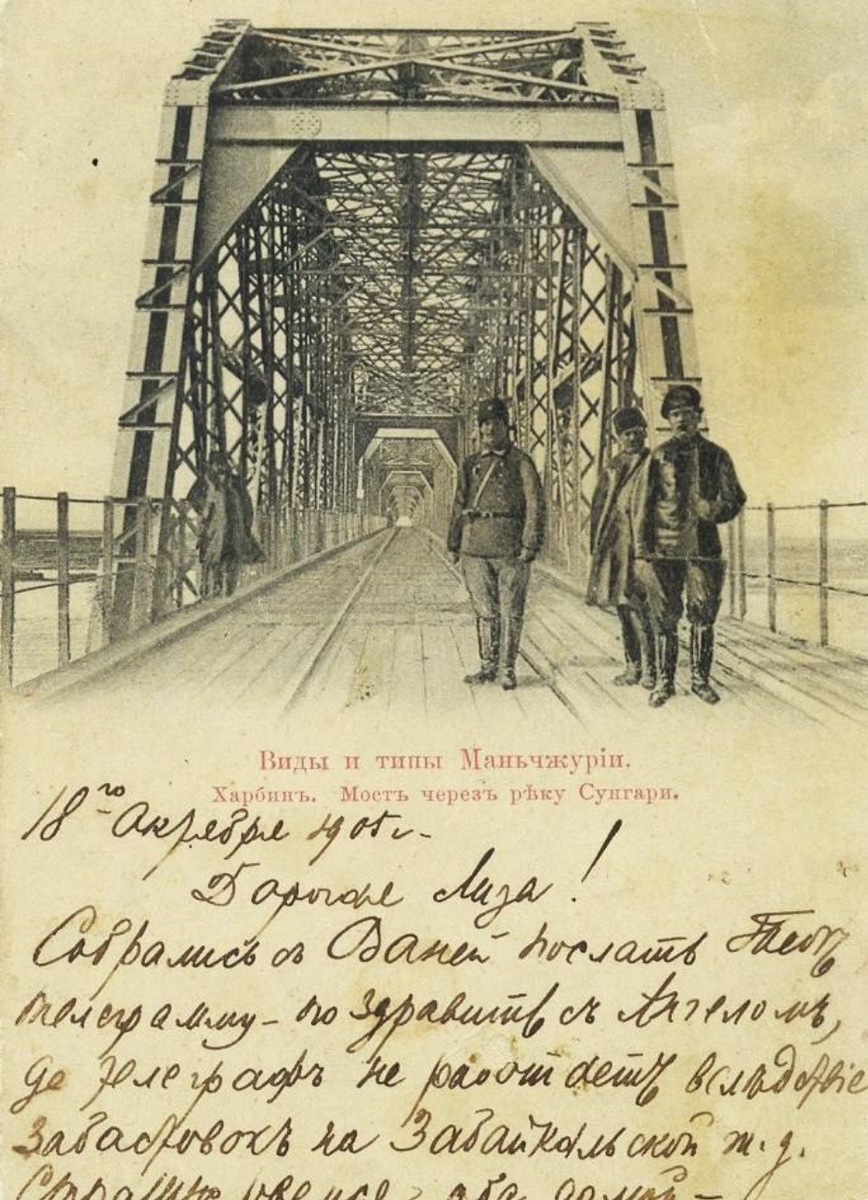 Виды и типы Маньчжуріи.
Харбинъ. Мостъ черезъ рѣку Сунгари.
18го Октября 1905 г.
Дорогая Лиза!
Собрались съ Ваней послать Тебѣ
телеграмму - поздравить съ Ангеломъ,
да телеграфъ не работаетъ вслѣдствіе
забастовокъ на Забайкальской ж. д.